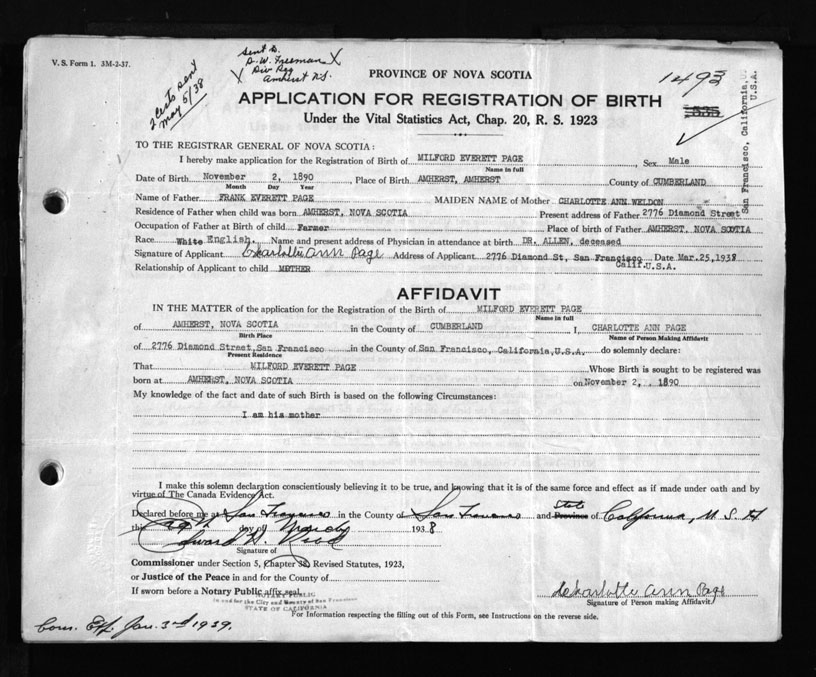 V. S. Form 1. 3M-2-37.
2 certs sent
May 5/38
Sent to
D. W. Freeman X
X Div Reg
Amherst N.S.
PROVINCE OF NOVA SCOTIA
1493
APPLICATION FOR REGISTRATION OF BIRTH
535
Under the Vital Statistics Act, Chap. 20, R. S. 1923
San Francisco, California, U.
U.S.A.
TO THE REGISTRAR GENERAL OF NOVA SCOTIA:
I hereby make application for the Registration of Birth of MILFORD EVERETT PAGE, Sex Male
Name in full
Date of Birth November 2, 1890, Place of Birth AMHERST, AMHERST County of CUMBERLAND
Month Day Year
Name of Father FRANK EVERETT PAGE MAIDEN NAME of Mother CHARLOTTE ANN WELDON
Residence of Father when child was born AMHERST, NOVA SCOTIA Present address of Father 2776 Diamond Street
Occupation of Father at Birth of child Farmer Place of birth of Father AMHERST, NOVA SCOTIA
Race White English. Name and present address of Physician in attendance at birth DR. ALLEN, deceased
Signature of Applicant Charlotte Ann Page Address of Applicant 2776 Diamond St, San Francisco Date Mar.25,1938
Calif.U.S.A.
Relationship of Applicant to child MOTHER
AFFIDAVIT
IN THE MATTER of the application for the Registration of the Birth of MILFORD EVERETT PAGE
Name in full
of AMHERST, NOVA SCOTIA in the County of CUMBERLAND I, CHARLOTTE ANN PAGE
Birth Place Name of Person Making Affidavit
of 2776 Diamond Street, San Francisco in the County of San Francisco, California, U.S.A. do solemnly declare:
Present Residence
That MILFORD EVERETT PAGE Whose Birth is sought to be registered was
born at AMHERST, NOVA SCOTIA on November 2, , 1890
My knowledge of the fact and date of such Birth is based on the following Circumstances:
I am his mother
I make this solemn declaration conscientiously believing it to be true, and knowing that it is of the same force and effect as if made under oath and by
virtue of The Canada Evidence Act.
Declared before me at San Francisco in the County of San Francisco and State Province of California, U. S. A
this day of March 1938
Edward D.
Signature of
Commissioner under Section 5, Chapter 38, Revised Statutes, 1923,
or Justice of the Peace in and for the County of
If sworn before a Notary Public affix seal.
NOTARY PUBLIC
in and for the City and County of San Francisco
STATE OF CALIFORNIA
Charlotte Ann Page
Signature of Person making Affidavit
For Information respecting the filling out of this Form, see Instructions on the reverse side.
Com. Exp. Jan. 3rd 1939.